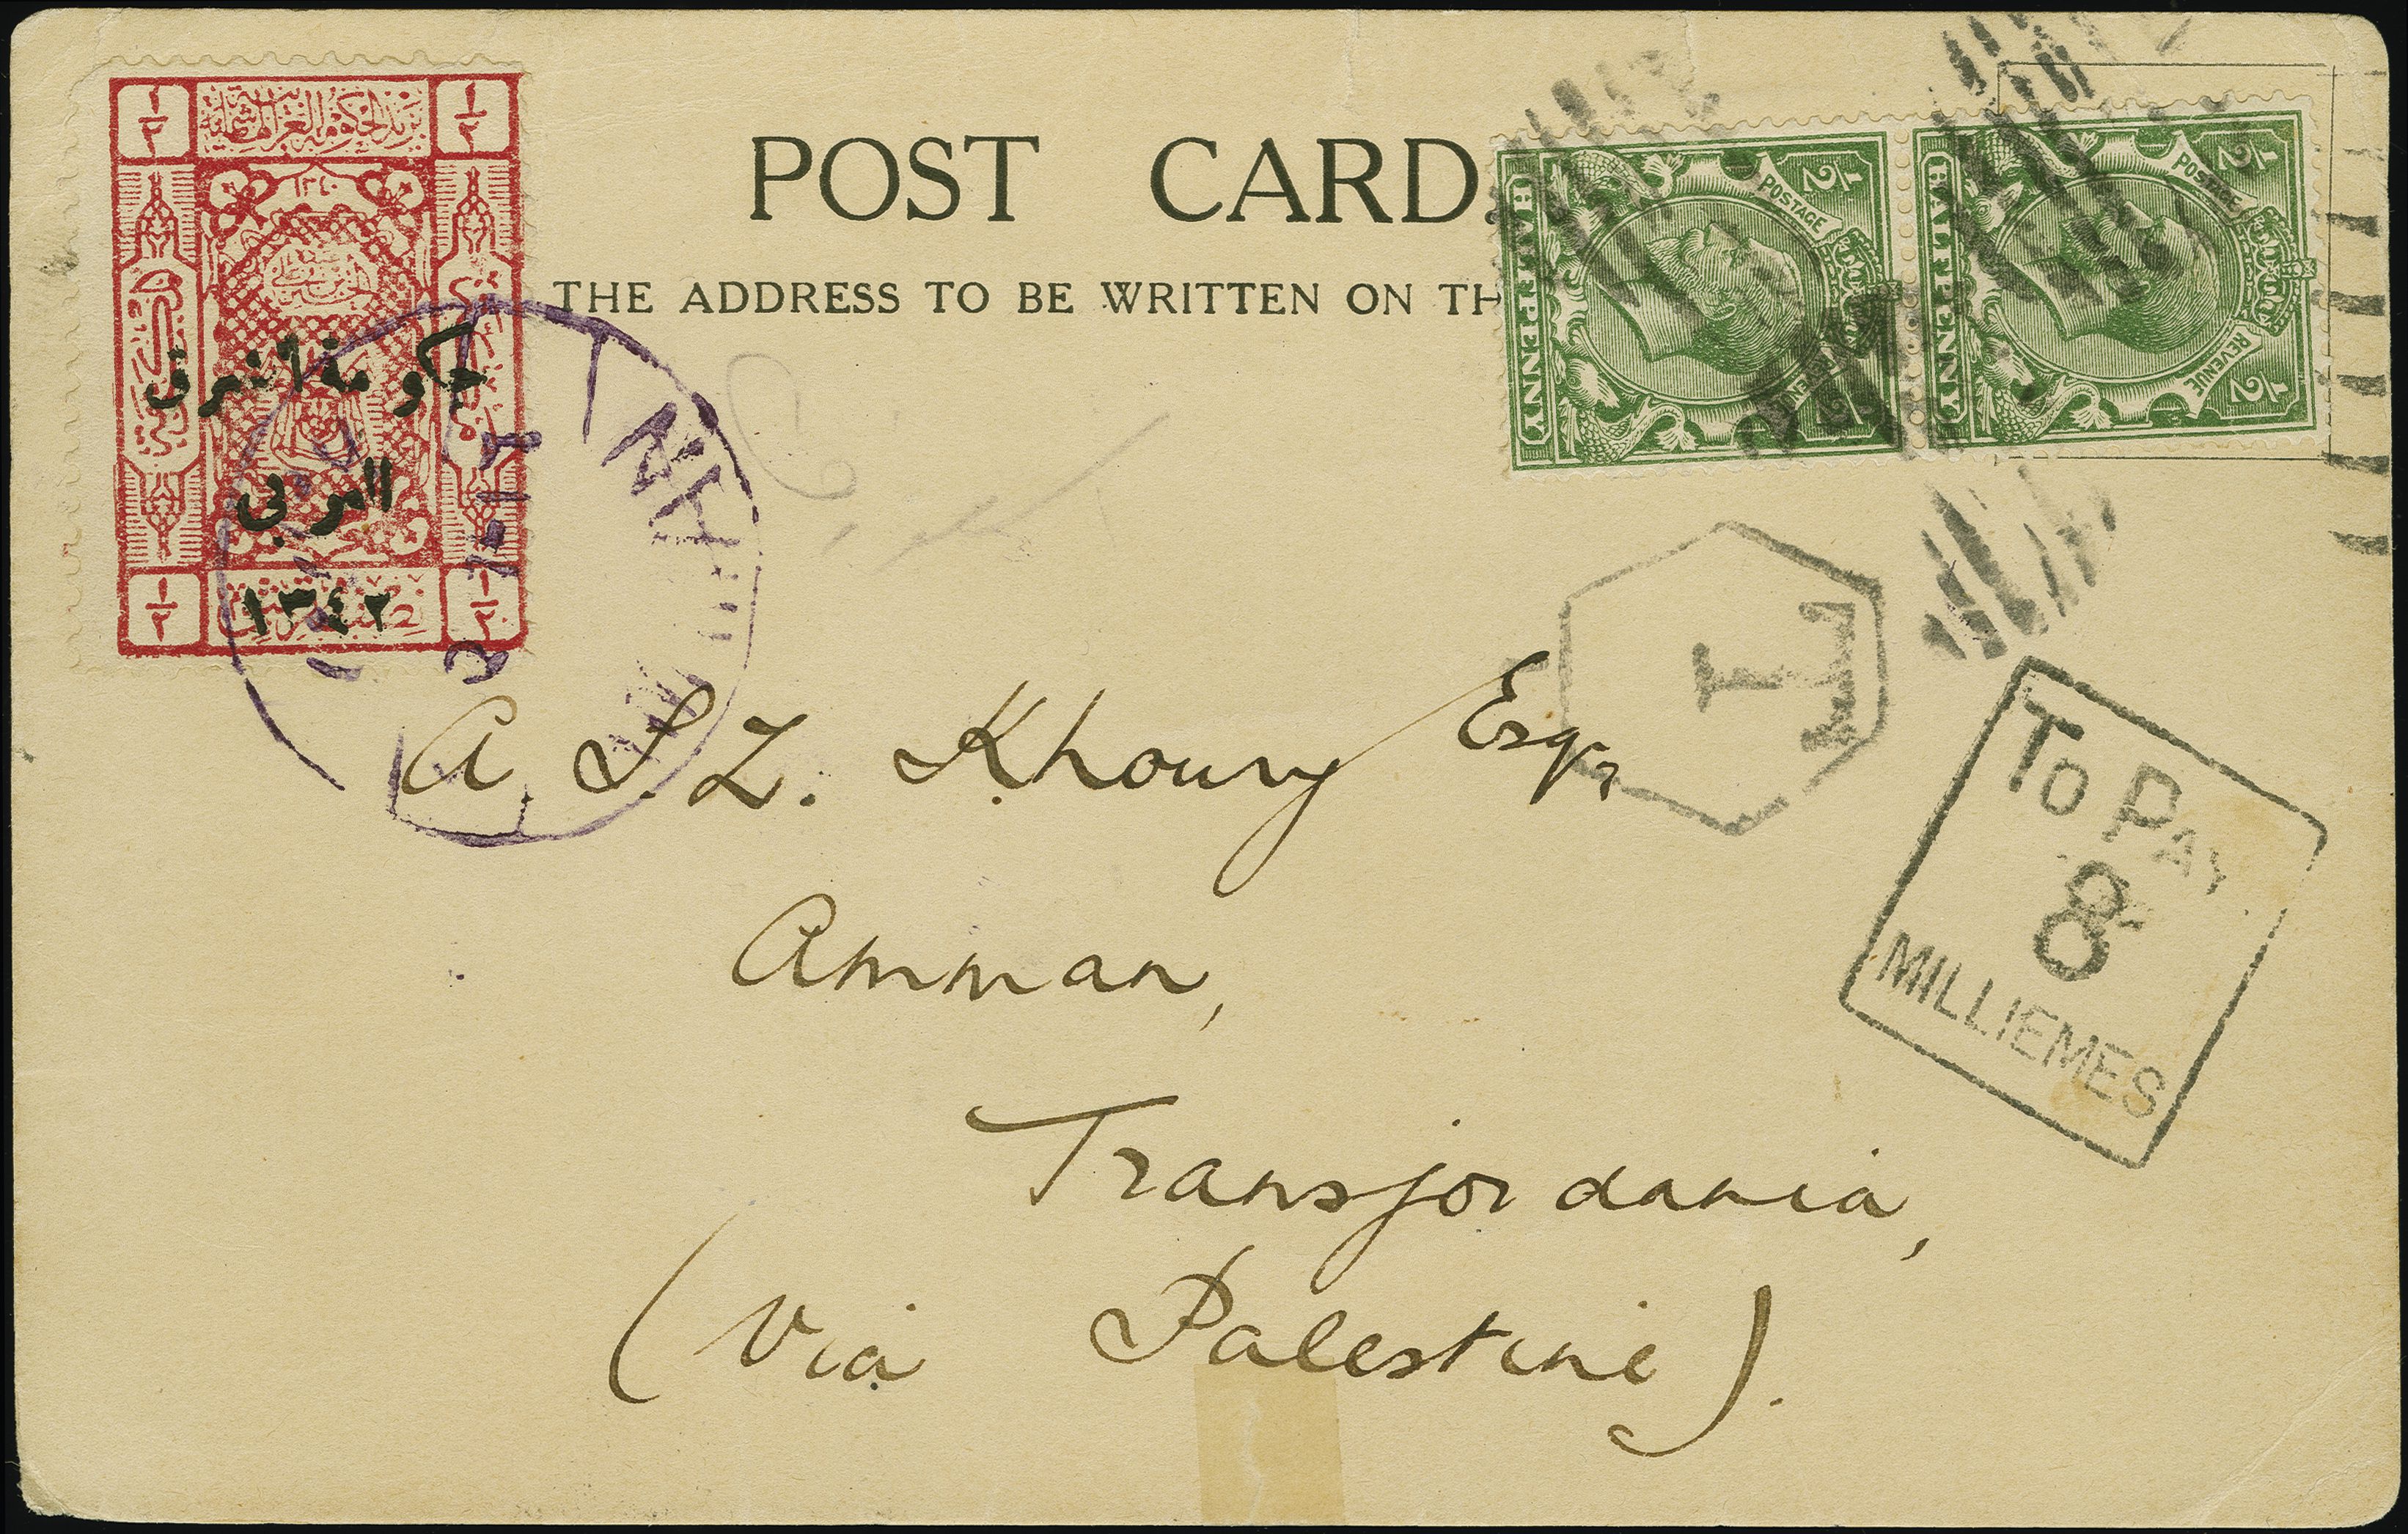 POST CARD.
THE ADDRESS TO BE WRITTEN ON TH
½ ½
POSTAGE
POSTAGE
REVENUE
HALFPENNY
HALFPENNY
½ ½
١/٢ ١/٢
بريد الحكومة العربية الهاشمية
١٣٤٠
حكومة الشرق
العربي
١٣٤٢
١/٢ ١/٢
T
1
TO PAY
8
MILLIEMES
A. S. Z. Khoury Esqr
Amman,
Transjordania,
(Via Palestine).